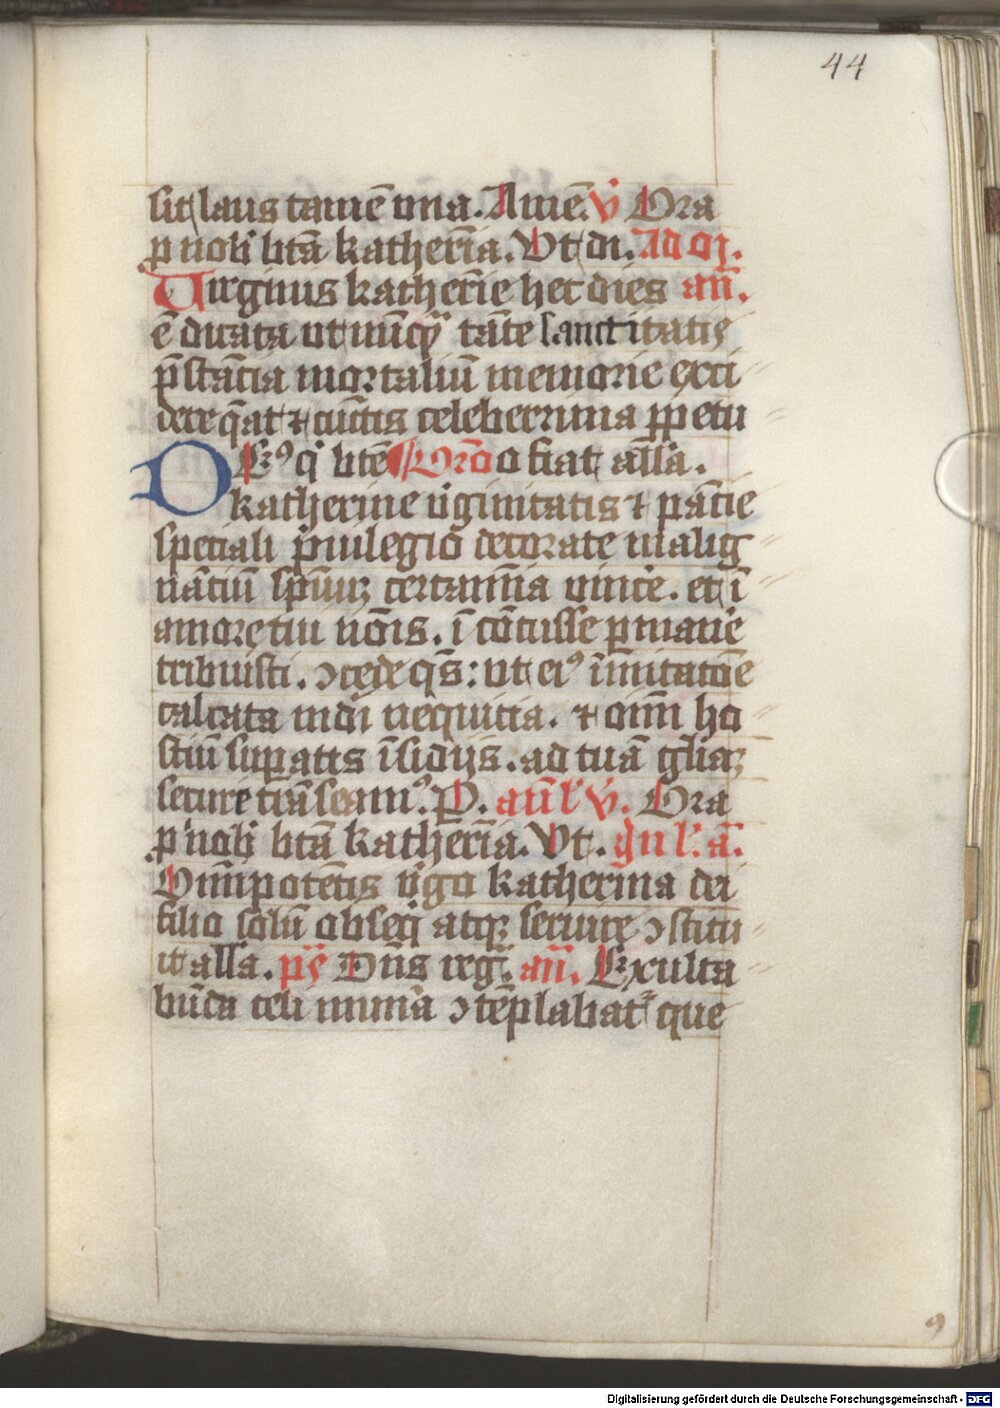 44
sit laus tamē una. Amē. v̄ Ora
p nob btā katherīa. Vt di. Ad oj.
Virginis katherīe hec dies an̄.
ē dicata ut nūcq tāte sanctitatis
p̄stācia mortaliū memorie exci
dere q̄at ⁊ cūctis celeberrima ppetu
DEꝰ q̇ btē Orō o fiat all̄a.
katherine v̇ginitatis ⁊ pācie
speciali ṗuilegio decorate malig
nāciū sp̄uuꝫ certamīa vincē. et ī
amore tui nōis. ī cōcusse pmanē
tribuisti. ꝯcede qs̄: ut eiꝰ īmitacōe
calcata mūdi nequicia. ⁊ oīm ho
stiū supatis īsidijs. ad tuā gl̄iaꝫ
secure trāseamꝰ. P. an̄ l' v̄. Ora
p nob btā katherīa. Vt. a.
Omīpotētis v̇go katherina dei
filio solū obseq̇ atqꝫ seruire ꝯstitu
it all̄a. ps̄ Dn̄s reg. an̄. Exulta
būda celi numīa ꝯtēplabat᷑ que
9
Digitalisierung gefördert durch die Deutsche Forschungsgemeinschaft - DFG